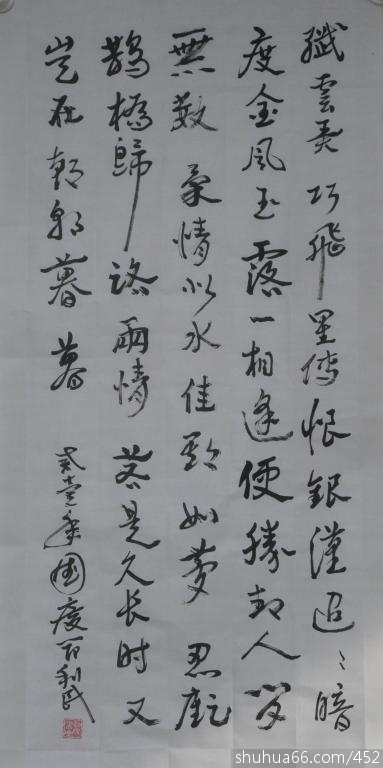 纖雲弄巧飛星傳恨銀漢迢々暗
度金風玉露一相逢便勝卻人間
無數柔情似水佳期如夢忍顧
鵲橋歸路兩情若是久長時又
豈在朝朝暮暮
貳壹年國慶利民
shuhua66.com/452